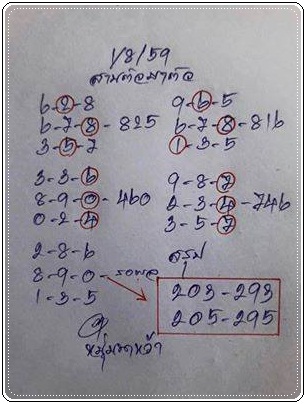 1/8/59
สามตัวมาตัว
6-2-8
6-7-8-825
3-5-7
9-6-5
6-7-8-816
1-3-5
3-3-6
8-9-0-460
0-2-4
9-8-7
2-3-4-746
3-5-7
2-8-6
8-9-0-รอผล
1-3-5
สรุป
203-293
205-295